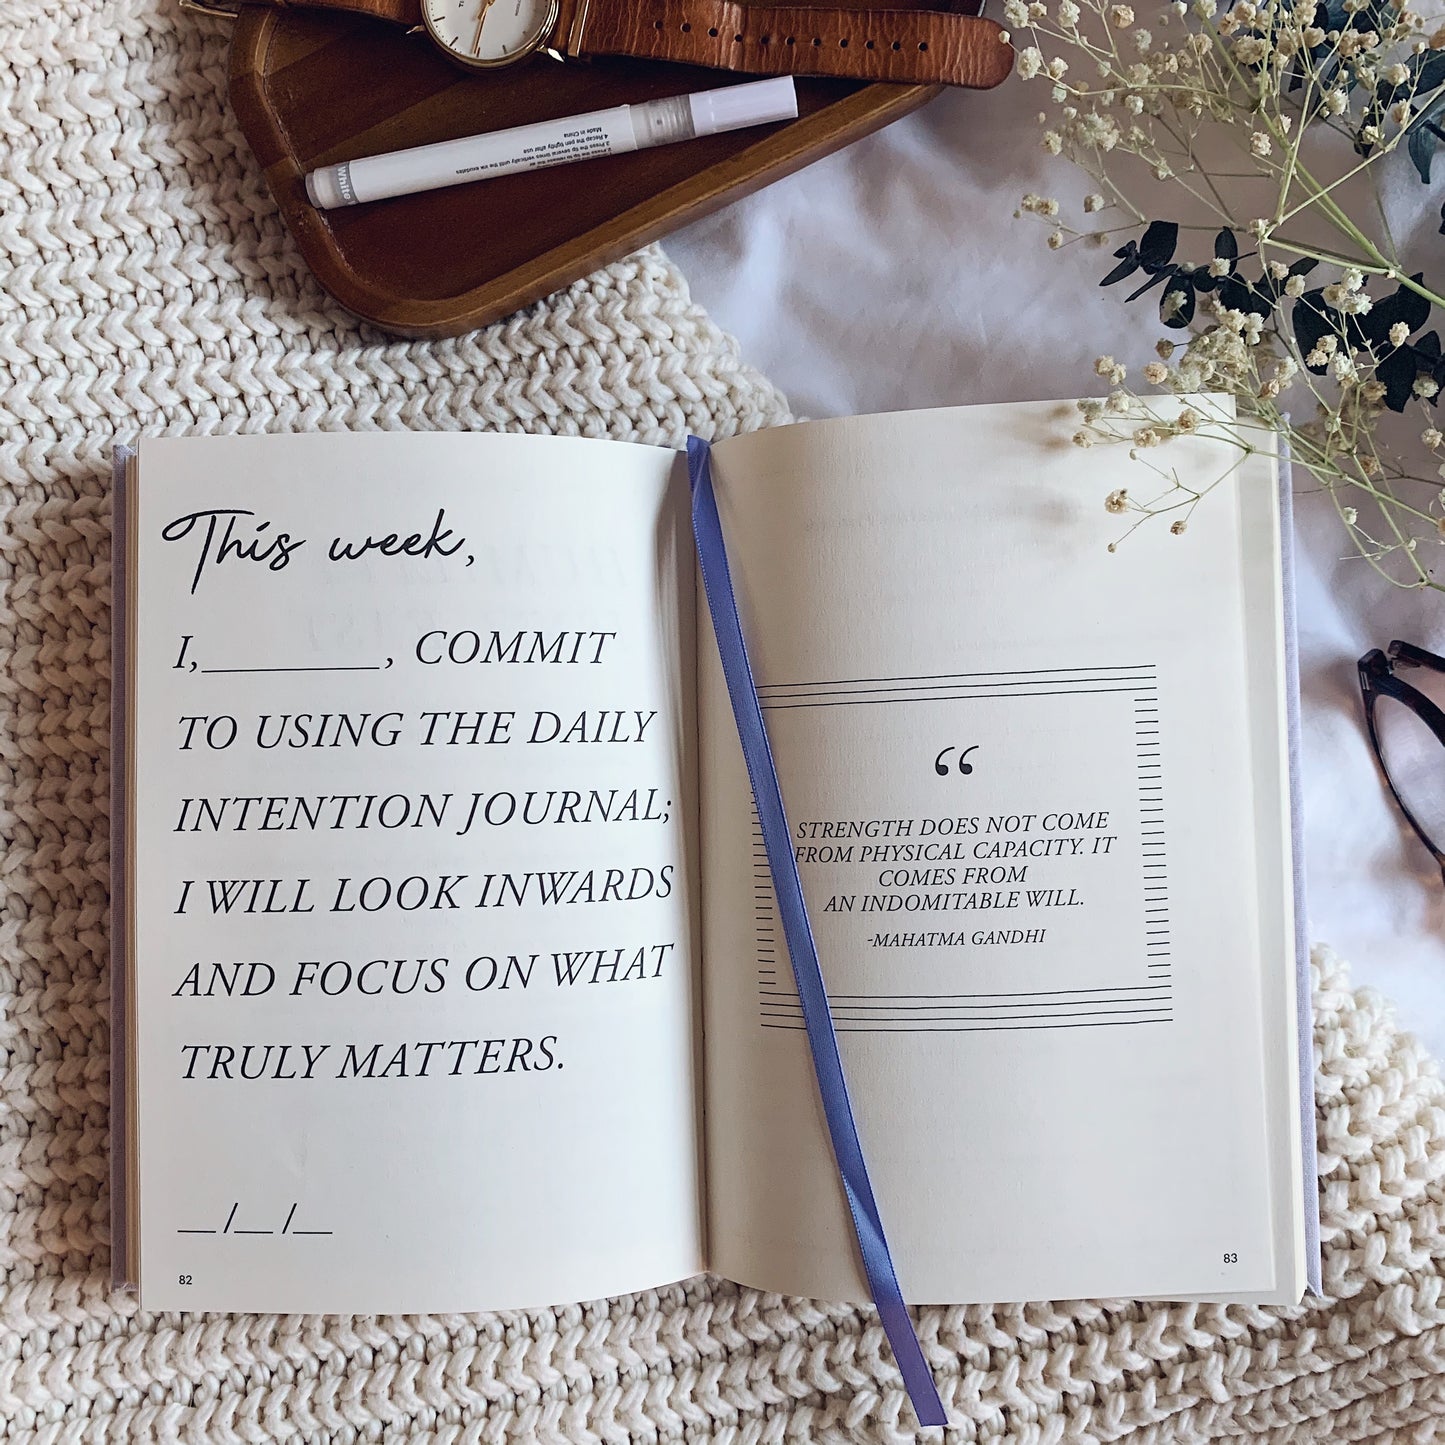 White
2 Press the tip to release the air
3 Press the tip several times vertically until the ink exudates
4 Recap the pen tightly after use
Made in China
This week,
I,________, COMMIT
TO USING THE DAILY
INTENTION JOURNAL;
I WILL LOOK INWARDS
AND FOCUS ON WHAT
TRULY MATTERS.
__/__/__
82
“
STRENGTH DOES NOT COME
FROM PHYSICAL CAPACITY. IT
COMES FROM
AN INDOMITABLE WILL.
-MAHATMA GANDHI
83